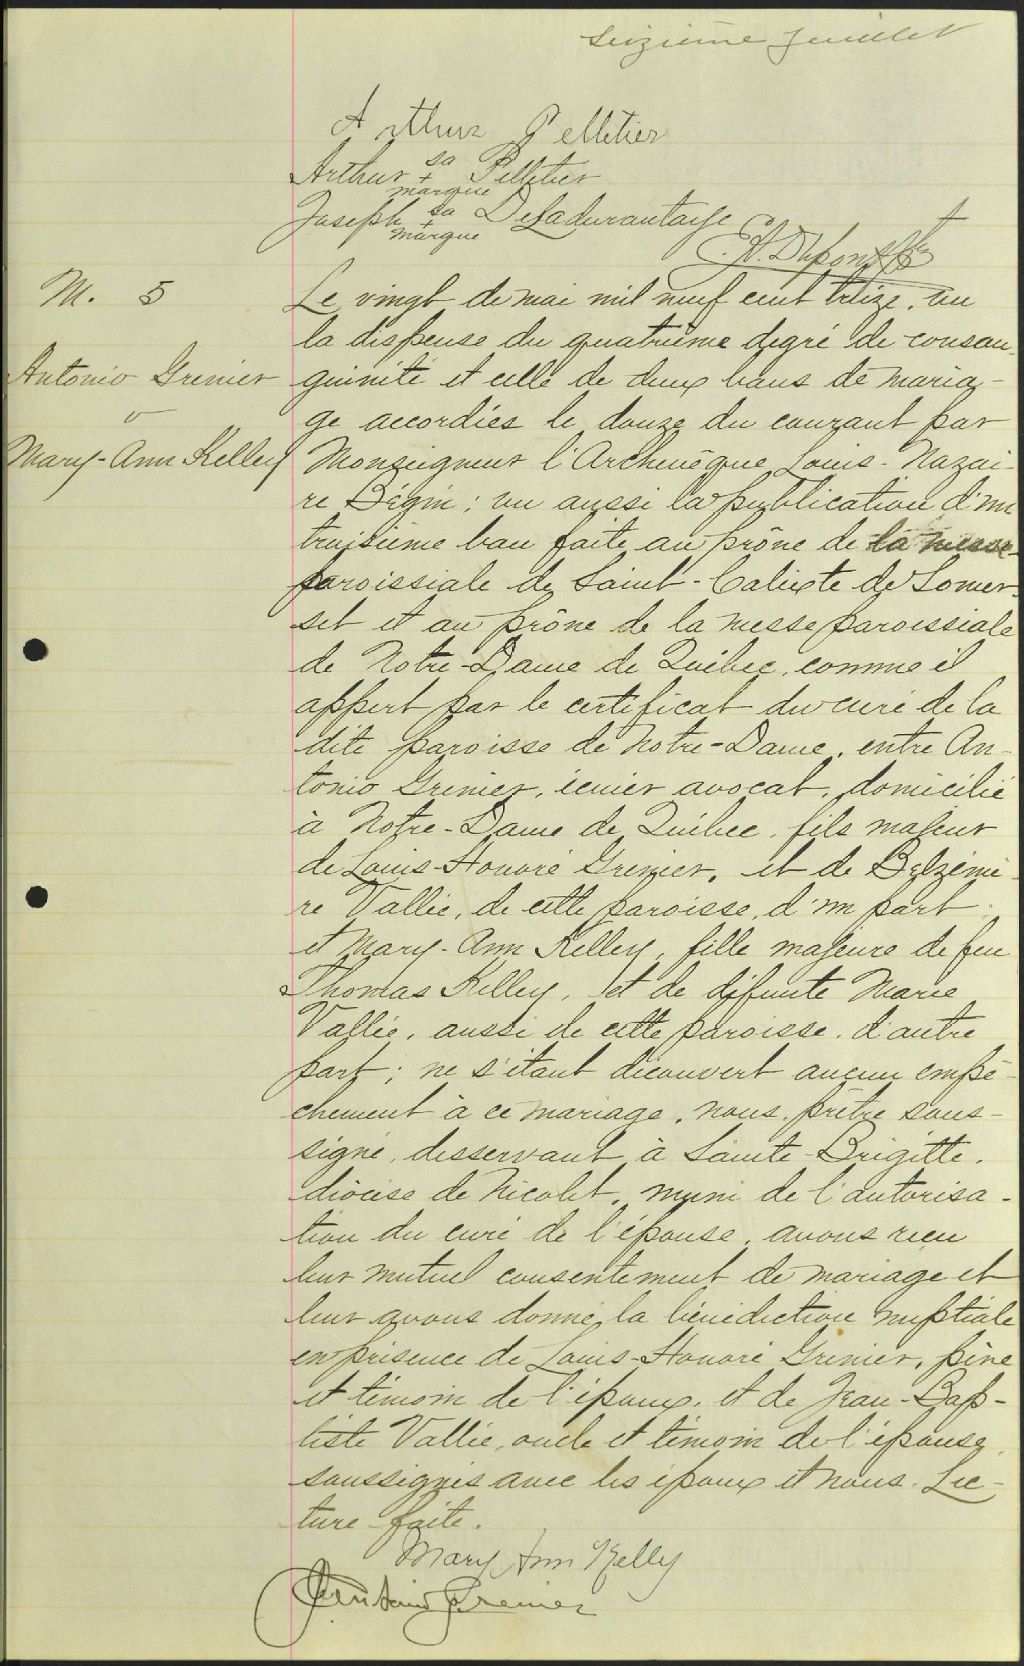 Seizième feuillet
Arthur Pelletier
Arthur sa + marque Pelletier
Joseph sa + marque Deladurantaye
Dupont Ptre
M. 5
Antonio Grenier
v
Mary-Ann Kelley
Le vingt de mai mil neuf cent treize, vu
la dispense du quatrième degré de consan-
guinité et celle de deux bans de maria-
ge accordées le douze du courant par
Monseigneur l'Archevêque Louis-Nazai-
re Bégin; vu aussi la publication d'un
troisième ban faite au prône de la messe
paroissiale de Saint-Calixte de Somer-
set et au prône de la messe paroissiale
de Notre-Dame de Québec, comme il
appert par le certificat du curé de la
dite paroisse de Notre-Dame, entre An-
tonio Grenier, écuier avocat, domicilié
à Notre-Dame de Québec, fils majeur
de Louis-Honoré Grenier, et de Belzémi-
re Vallée, de cette paroisse, d'un part;
et Mary-Ann Kelley, fille majeure de feu
Thomas Kelley, et de défunte Marie
Vallée, aussi de cette paroisse, d'autre
part; ne s'étant découvert aucun empê-
chement à ce mariage, nous, prêtre sous-
signé, desservant à Sainte-Brigitte,
diocèse de Nicolet, muni de l'autorisa-
tion du curé de l'épouse, avons reçu
leur mutuel consentement de mariage et
leur avons donné la bénédiction nuptiale
en présence de Louis-Honoré Grenier, père
et témoin de l'époux, et de Jean-Bap-
tiste Vallée, oncle et témoin de l'épouse,
soussignés avec les époux et nous. Lec-
ture faite.
Mary Ann Kelly
Antonio Grenier